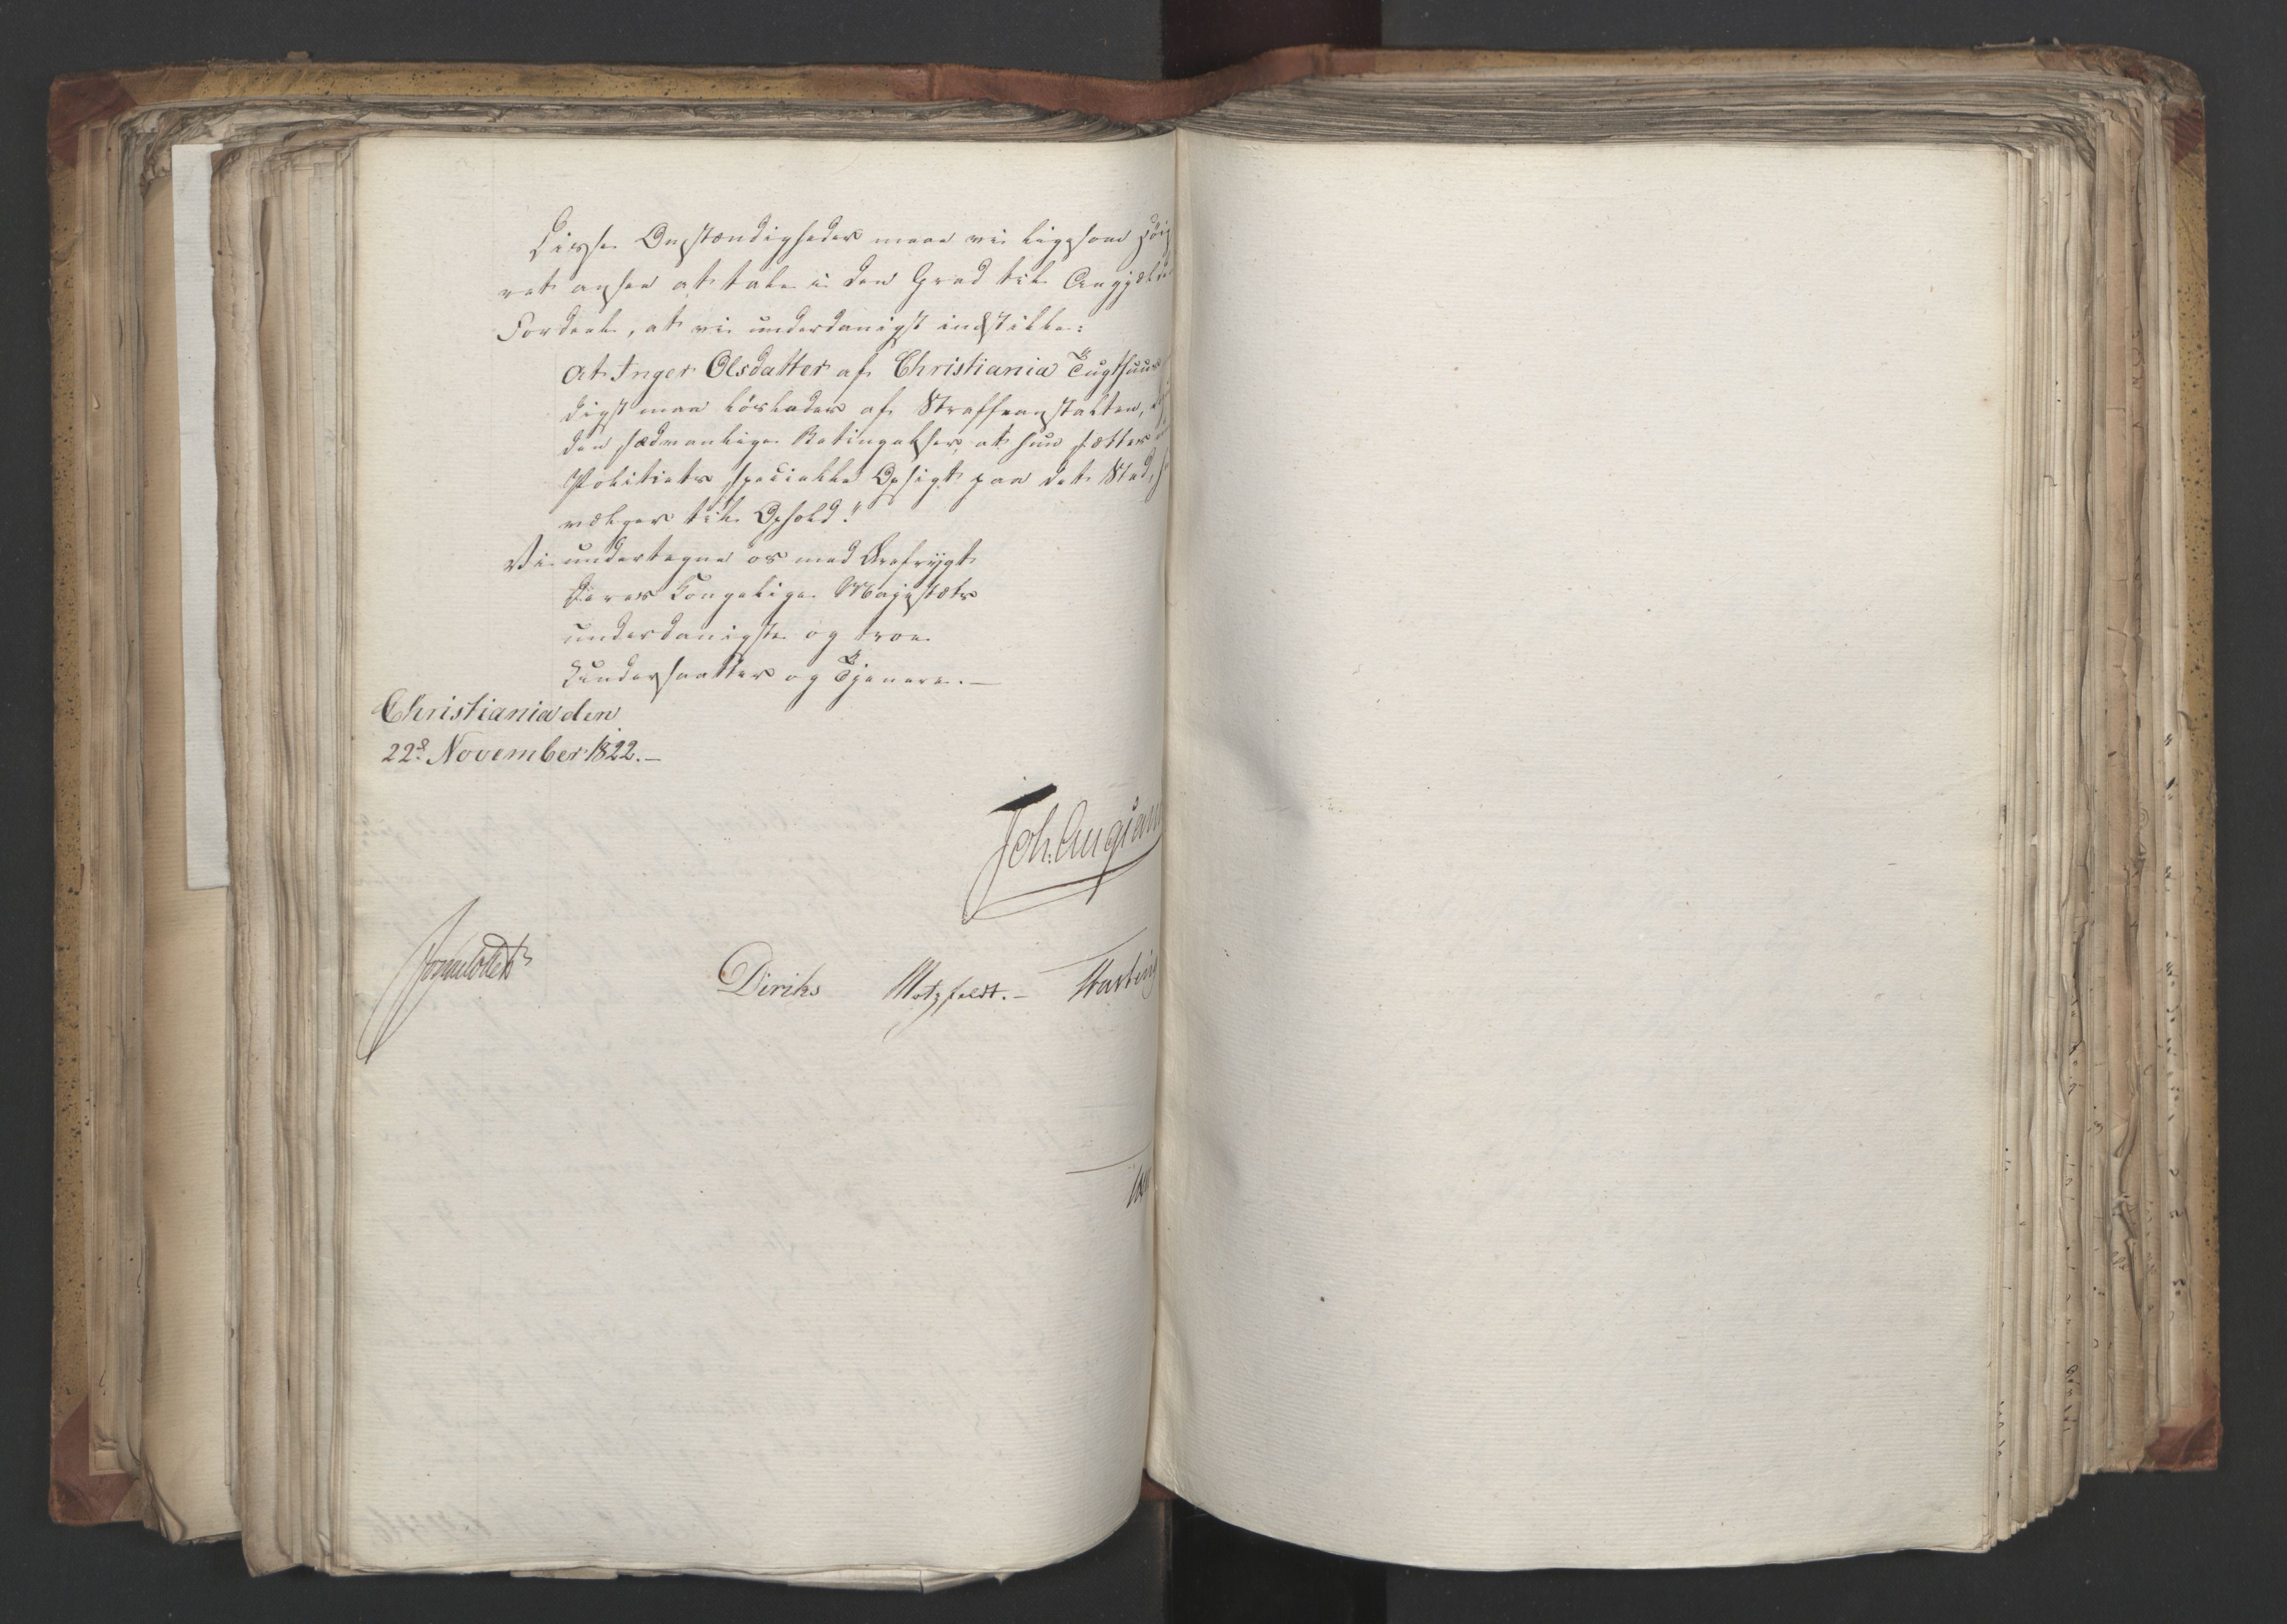 Disse Omstændigheder maae vi ligesom
ret ansee at tale i den Grad til
Fordeel, at vi underdanigst indstille:
At Inger Olsdatter af Christiania Tugthuus
digst maa løslades af Straffeanstalten,
den sædvanlige Betingelse, at hun sættes
Politiets specielle Opsigt paa det Sted,
vælger til Ophold."
Vi undertegne os med Ærefrygt
Deres Kongelige Majestæts
underdanigste og troe
Undersaatter og Tjenere.—
Christiania den
22de November 1822.—
Joh. Aug: San
Sommerfeldt
Diriks Motzfeldt.—